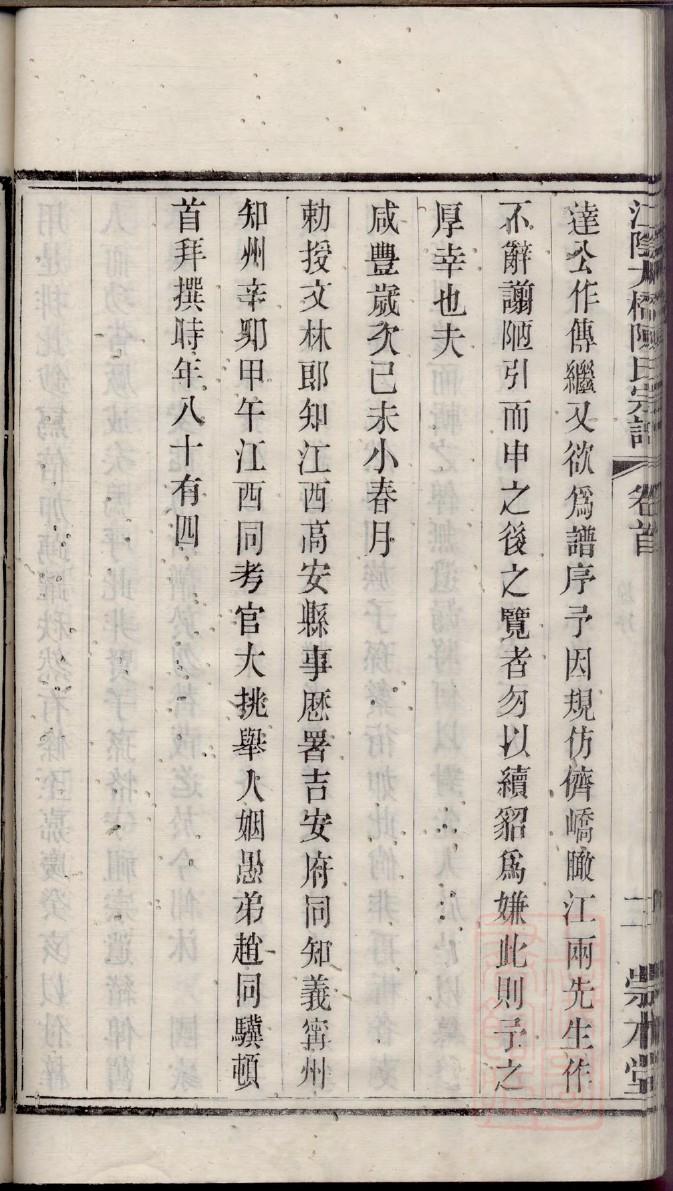 江陰大橋陳氏宗譜 卷首 二 崇本堂
達公作傳繼又欲爲譜序予因規仿儕嶠瞰江兩先生作
不辭謭陋引而申之後之覽者勿以續貂爲嫌此則予之
厚幸也夫
咸豐歲次已未小春月
勅授文林郎知江西高安縣事歷署吉安府同知義寧州
知州辛夘甲午江西同考官大挑舉人姻愚弟趙同驥頓
首拜撰時年八十有四